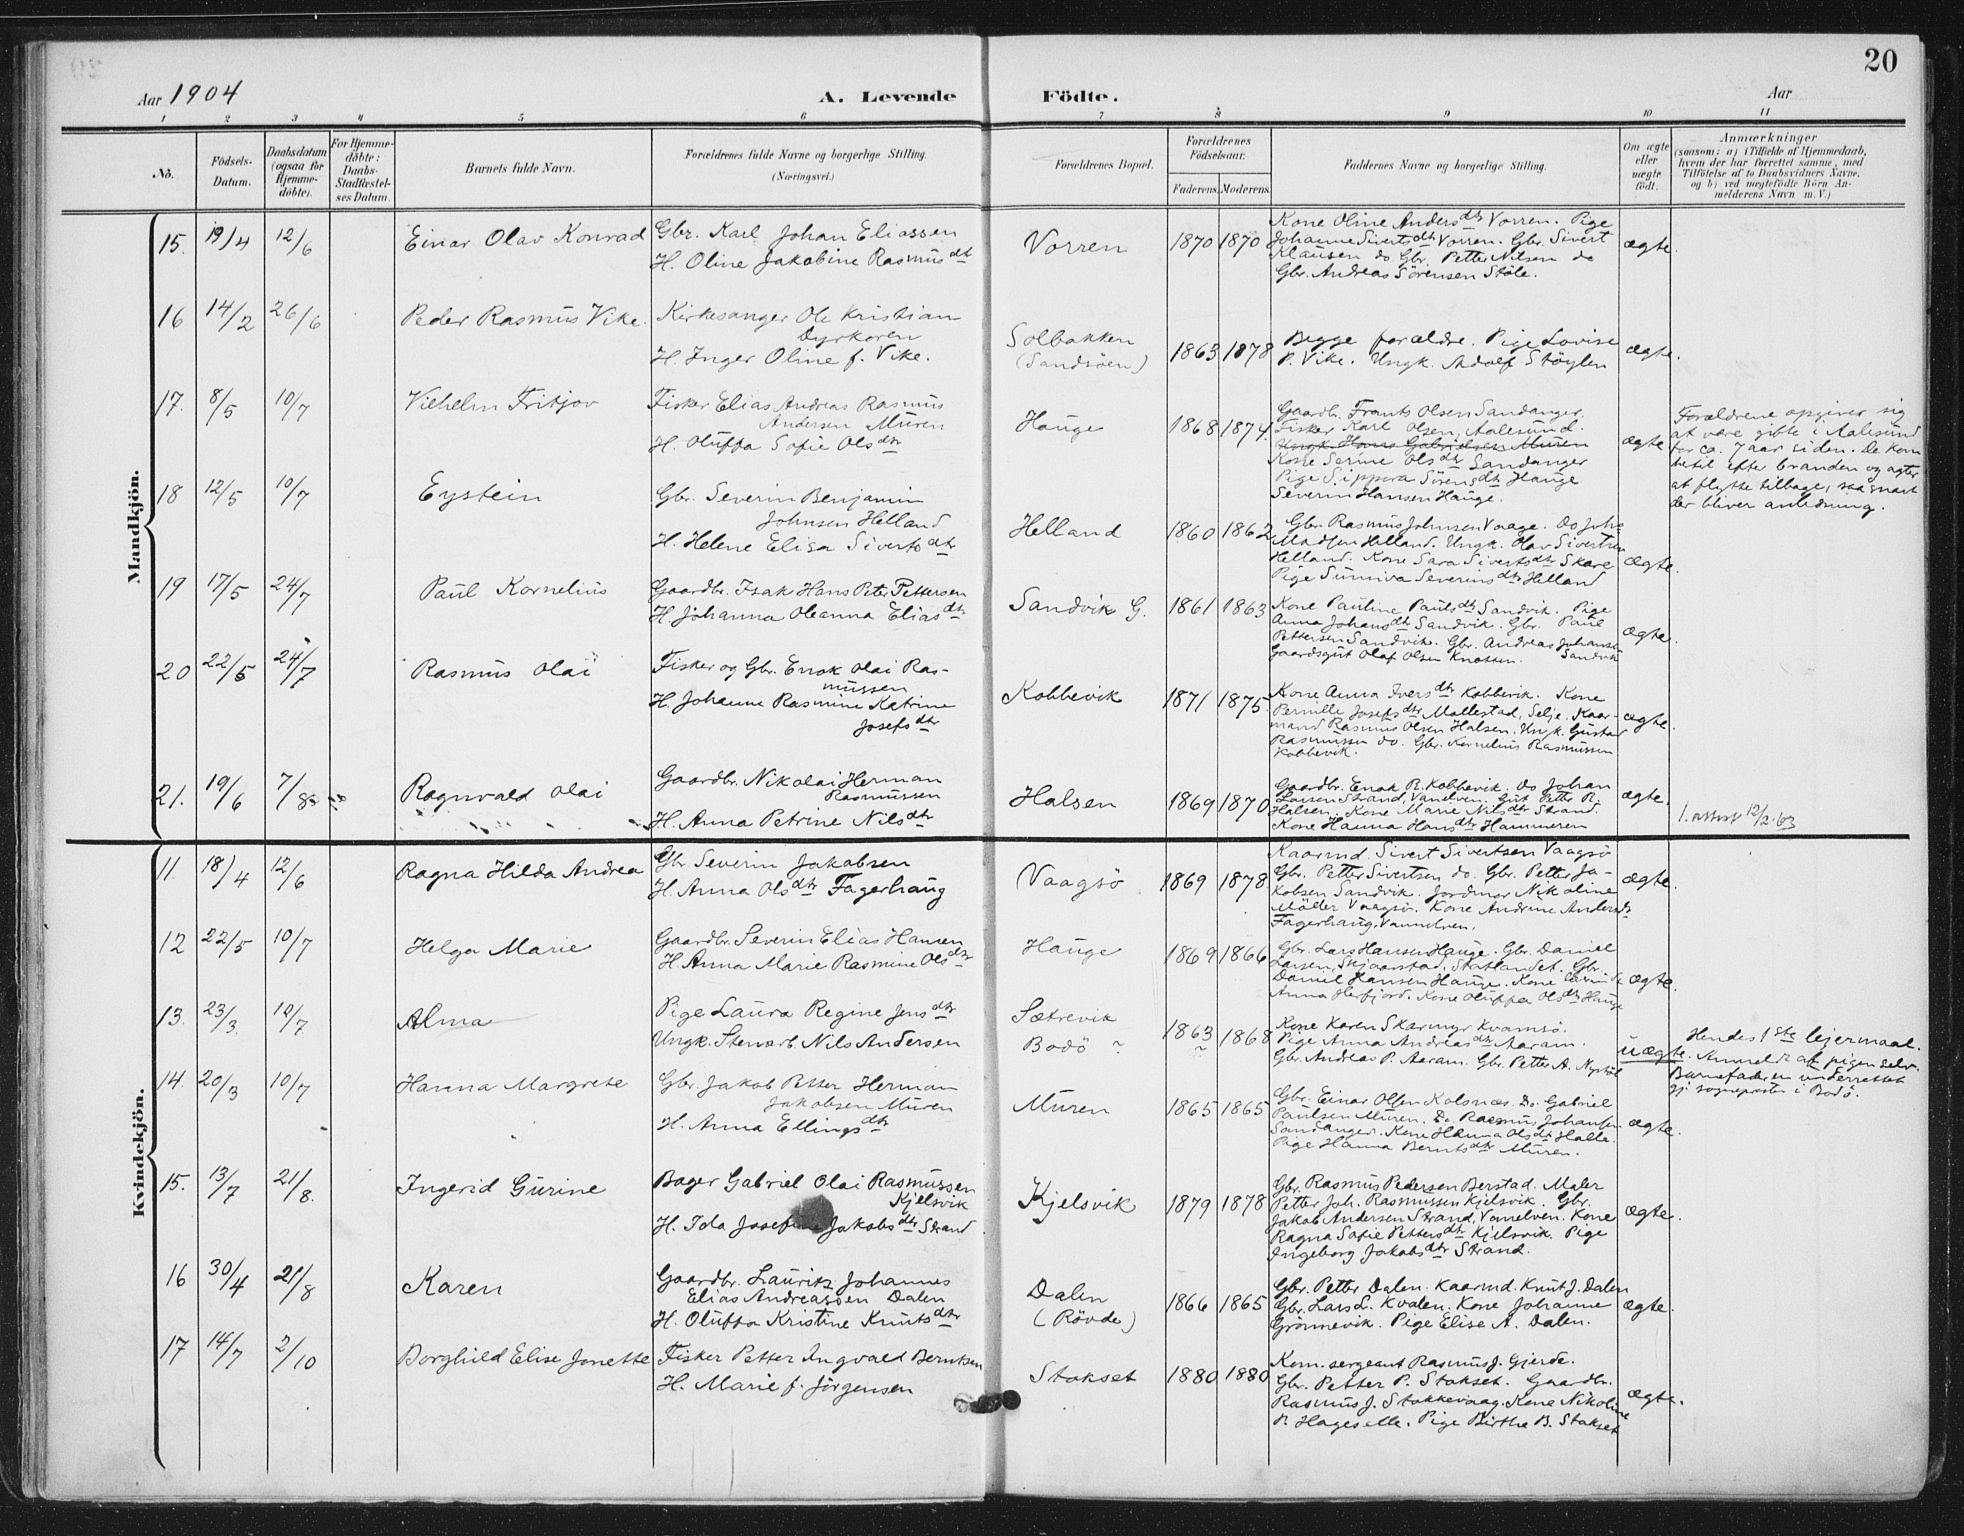 20
Aar 1904
A. Levende Födte.
Aar
1 2 3 4 5 6 7 8 9 10 11
No.
Födsels-Datum.
Daabsdatum (ogsaa for Hjemme-döbte).
For Hjemme-döbte: Daabs-Stadfæstel-ses Datum.
Barnets fulde Navn.
Forældrenes fulde Navne og borgerlige Stilling. (Næringsvei.)
Forældrenes Bopæl.
Forældrenes Födselsaar.
Faderens. Moderens.
Faddernes Navne og borgerlige Stilling.
Om ægte eller uægte födt.
Anmærkninger
(saasom: a) i Tilfælde af Hjemmedaab,
hvem der har forrettet samme, med
Tilföielse af to Daabsvidners Navne,
og b) ved uægtefödte Börn An-
melderens Navn m. V.)
Mandkjön.
15. 19/4 12/6 Einar Olav Konrad
Gbr. Karl Johan Eliassen
H. Oline Jakobine Rasmusdtr
Vorren 1870 1870
Kone Oline Andersdtr Vorren. Pige
Johanne Sivertsdtr Vorren. Gbr. Sivert
Klausen do Gbr. Petter Nilsen do
Gbr. Andreas Sörensen Stöle.
ægte.
16 14/2 26/6 Peder Rasmus Vike.
Kirkesanger Ole Kristian
Dyrkoren
H. Inger Oline f. Vike.
Solbakken
(Sandsöen)
1863 1878
Begge forældre. Pige Lovise
P. Vike. Ungk. Adolf Stöylen
ægte.
17. 8/5 10/7 Vilhelm Fritjov
Fisker Elias Andreas Rasmus
Andersen Muren
H. Oluffa Sofie Olsdtr
Hauge 1868 1874.
Gaardb. Frants Olsen Sandanger.
Fisker Karl Olsen, Aalesund.
Ungk. Hans Gabrielsen Muren
Kone Serine Olsdtr Sandanger
Pige Sippora Sörensdtr Hauge
Severin Hansen Hauge.
ægte
Forældrene opgiver sig
at være gibte i Aalesund
for ca. 7 aar siden. De kom
hetil efter branden og agter
at flytte tilbage, saasnart
der bliver anledning.
18 12/5 10/7 Eystein
Gbr. Severin Benjamin
Johnsen Helland
H. Helene Elisa Sivertsdtr
Helland 1860 1862
Gbr. Rasmus Johnsen Vaage. Do Johs
Madsen Helland. Ungk. Olav Sivertsen
Helland. Kone Sara Sivertsdtr Skare
Pige Sunniva Severinsdtr Helland
ægte.
19 17/5 24/7 Paul Kornelius
Gaardbr. Isak Hans Peter Pettersen
H. Johanna Oleanna Eliasdtr
Sandvik G. 1861 1863
Kone Pauline Paulsdtr Sandvik. Pige
Anna Johansdtr Sandvik. Gbr. Paul
Pettersen Sandvik. Gbr. Andreas Johansen
Gaardsgut Olaf Olsen Knotten. Sandvik
ægte.
20 22/5 24/7 Rasmus Olai
Fisker og Gbr. Enok Olai Ras-
mussen
H. Johanne Rasmine Katrine
Josefsdtr
Kobbevik 1871 1875.
Kone Anna Iversdtr Kobbevik. Kone
Pernille Josefsdtr Mallestad, Selje. Kaar-
mand Rasmus Olsen Halsen. Ungk. Gustav
Rasmussen do. Gbr. Kornelius Rasmussen
Kobbevik.
ægte.
21. 19/6 7/8 Ragnvald Olai
Gaardbr. Nikolai Herman
Rasmussen
H. Anna Petrine Nilsdtr
Halsen 1869 1870
Gaardbr. Enok R. Kobbevik. Do Johan
Larsen Strand, Vanelven. Gut Petter R.
Halsen. Kone Marie Nilsdtr Strand.
Kone Hanna Hansdtr Hammeren
ægte.
1. attest 12/2-63
Kvindekjön.
11. 18/4 12/6 Ragna Hilda Andrea
Gbr Severin Jakobsen
H. Anna Olsdtr Fagerhaug
Vaagsö 1869 1878
Kaarmd. Sivert Sivertsen Vaagsö
Gbr. Petter Sivertsen do. Gbr. Petter Ja-
kobsen Sandvik. Jordmor Nikoline
Möller Vaagsö. Kone Andrine Andersdtr
Fagerhaug, Vannelven.
ægte.
12 22/5 10/7 Helga Marie
Gaardbr. Severin Elias Hansen
H. Anna Marie Rasmine Olsdtr
Hauge 1869 1866
Gbr. Lars Hansen Hauge. Gbr. Daniel
Larsen, Skjaarstad, Statlandet. Gbr.
Daniel Hansen Hauge. Kone
Anna Herfjord. Kone Oluffa Olsdtr Hauge
ægte.
13. 23/3 10/7 Alma
Pige Laura Regine Jensdtr
Ungk. Stenarb. Nils Andersen
Sætrevik
Bodö ?
1863 1868
?
Kone Karen Skarmyr Kvamsö.
Pige Anna Andreasdtr Aaram.
Gbr. Andreas P. Aaram. Gbr. Petter A. Nystöl
uægte.
Hendes 1ste leiermaal.
Anmeldt af pigen selv.
Barnefaderen underrettet
gj. sognepresten i Bodö.
14. 20/3 10/7 Hanna Margrete
Gbr. Jakob Petter Herman
Jakobsen Muren
H. Anna Ellingsdtr
Muren 1865 1865
Gbr. Einar Olsen Kolsnæs. Do Gabriel
Paulsen Muren. Do Rasmus Johansen
Sandanger. Kone Hanna Olsdtr Halle.
Pige Hanna Berntsdtr Muren.
ægte.
15. 13/7 21/8. Ingerid Gurine
Bager Gabriel Olai Rasmussen
Kjelsvik
H. Ida Josefine Jakobsdtr Strand
Kjelsvik 1879 1878
Gbr. Rasmus Pedersen Berstad. Maler
Petter Joh. Rasmussen Kjelsvik. Gbr.
Jakob Andersen Strand, Vanelven. Kone
Ragna Sofie Pettersdtr Kjelsvik. Pige
Ingeborg Jakobsdtr Strand.
ægte.
16 30/4 21/8 Karen
Gaardbr. Lauritz Johannes
Elias Andreassen Dalen
H. Oluffa Kristine Knutsdtr
Dalen
(Rövde)
1866 1865
Gbr. Petter Dalen. Kaarmd. Knut J. Dalen
Gbr. Lars L. Kvalen. Kone Johanne
Grönnevik. Pige Elise A. Dalen.
ægte.
17 14/7 2/10 Borghild Elise Jonette
Fisker Petter Ingvald Berntsen
H. Marie f. Jörgensen
Stokset 1880 1880
Kom. sergeant Rasmus J. Gjerde.
Gbr. Petter P. Stokset. Gaardbr.
Rasmus J. Stokkevaag. Kone Nikoline
P. Hageselle. Pige Birthe B. Stokset
ægte.